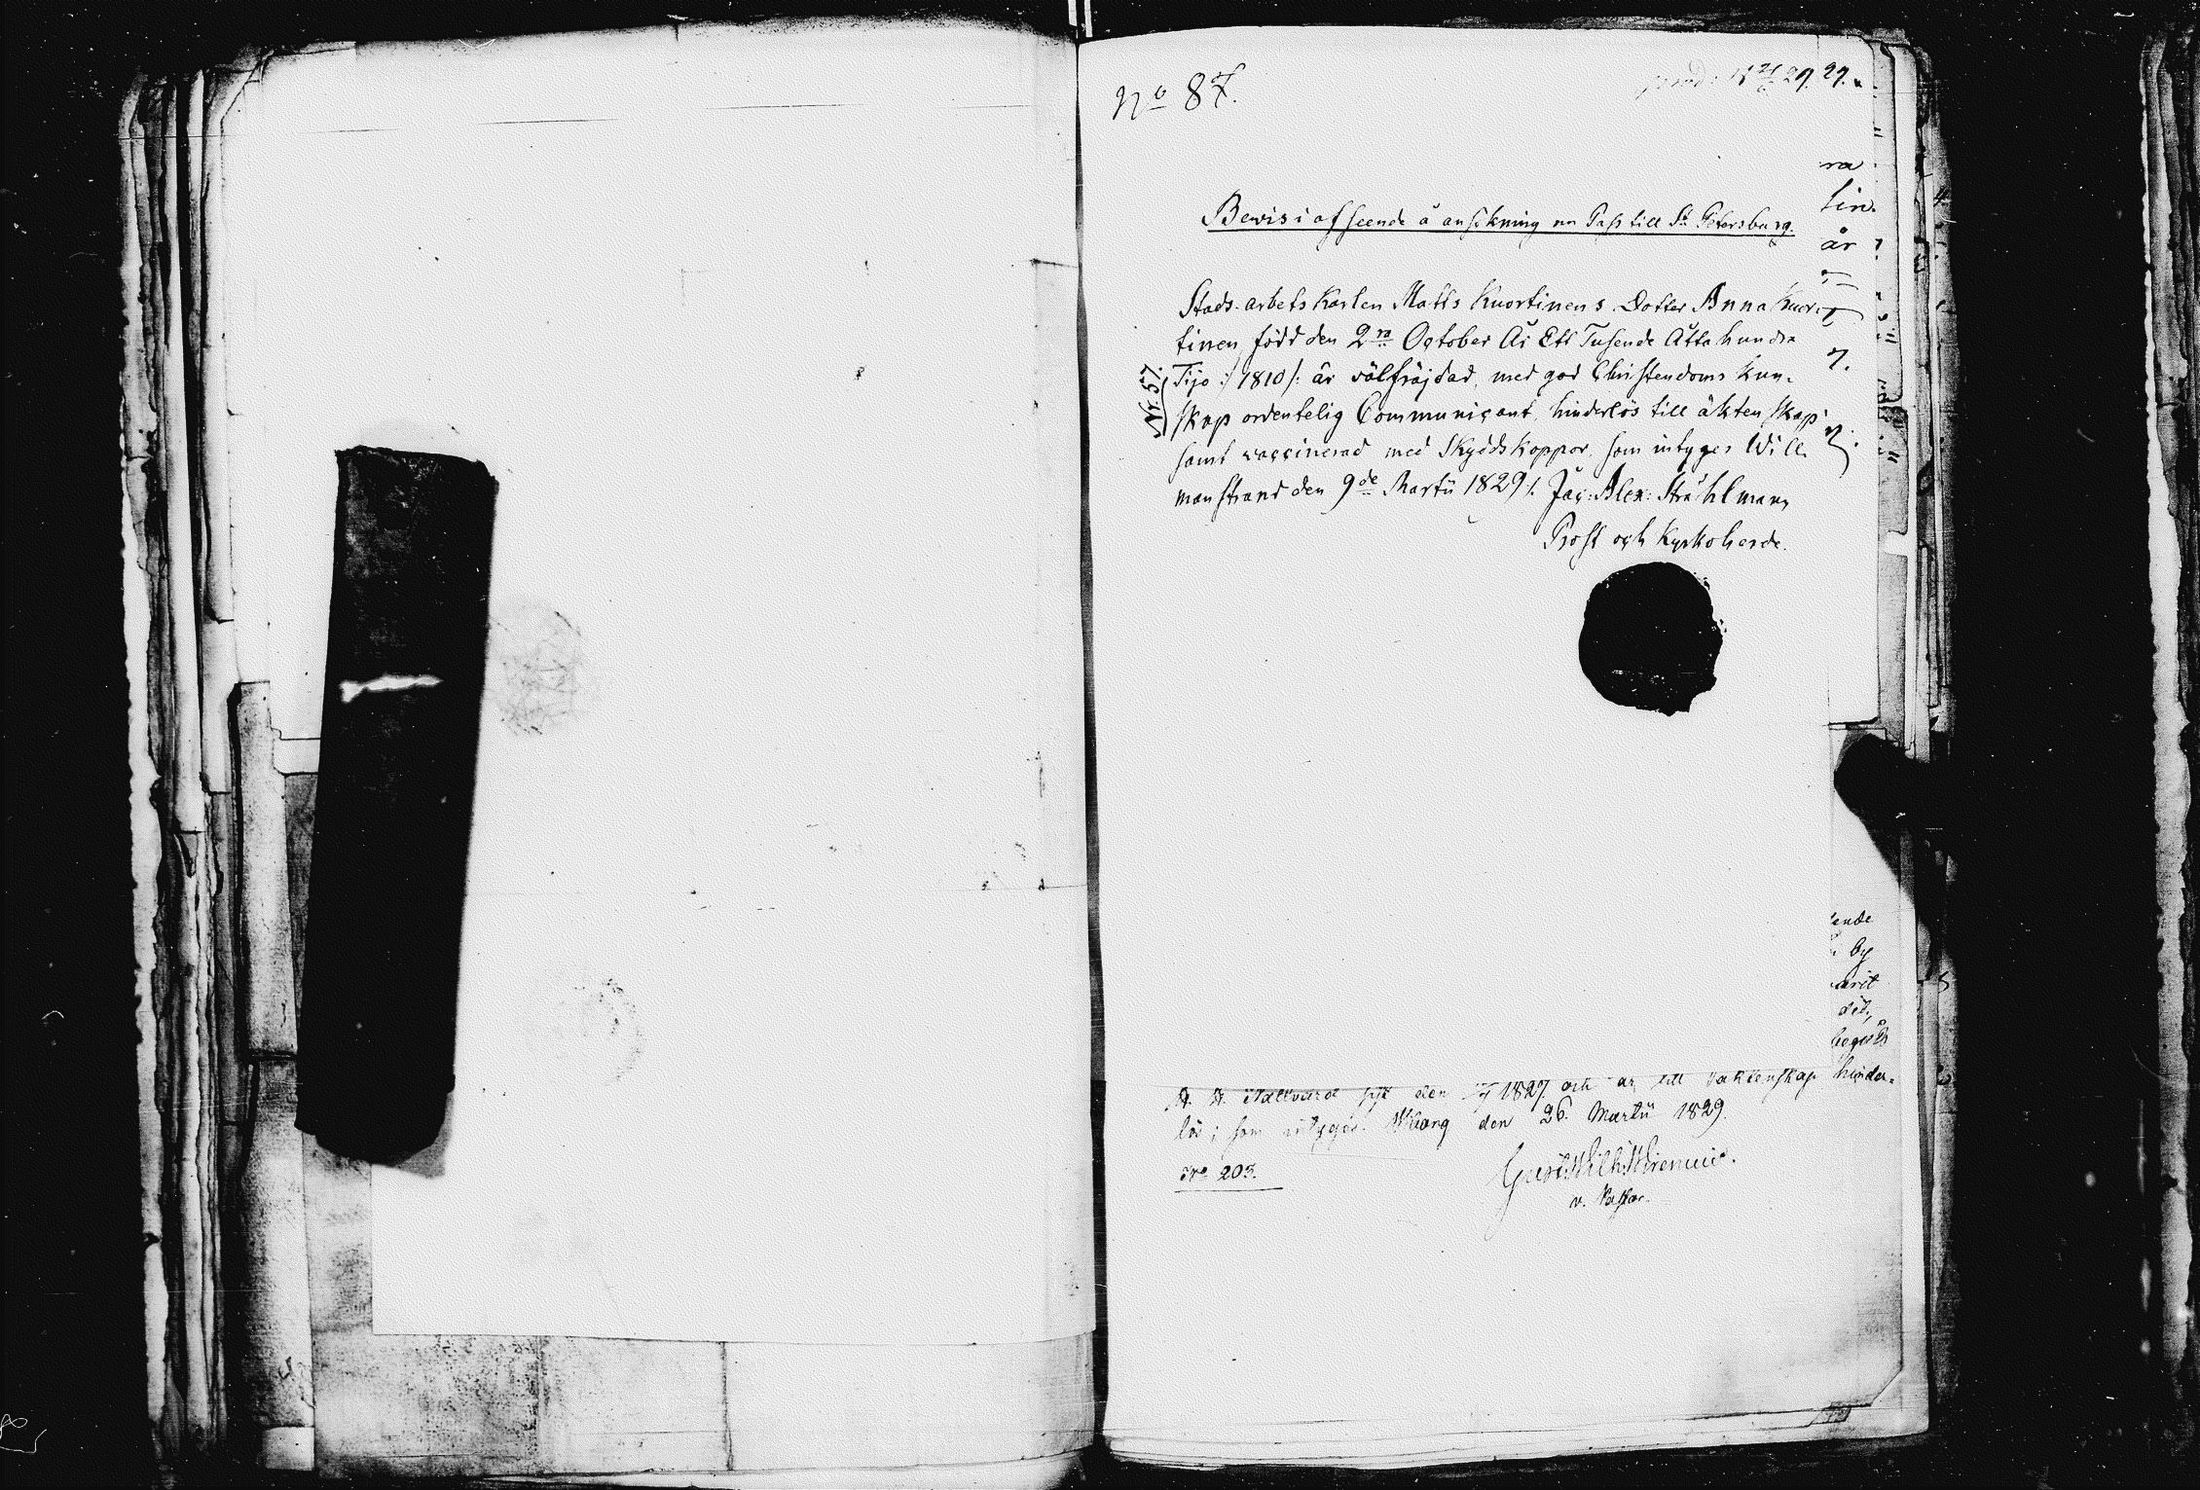 No 87.
29. 29.
Bewis i afseende å ansökning om Pass till St Petersburg.
Stads-arbets Karlen Matts Kuortinens Dotter Anna Kuor-
tinen född den 2ra October År Ett Tusende Åtta hundra
Tijo :/ 1810 /: är välfräjdad, med god Christendoms kun-
skap ordentelig Communicant, hinderlös till äktenskap
samt vaccinerad med Skyddskoppor, som intyges Will-
manstrand den 9de Martii 1829 /. Jac: Alex: Stråhlman,
Prost och Kyrkoherde.
Nr. 57.
ra
lin.
år
ende
by
arit
det,
Nattvard sist den 1827 och är till äktenskap hinder-
lös; som intygas. Wiborg den 26 Martii 1829.
Nro 203.
Gust. Wilh.
v. Pastor.